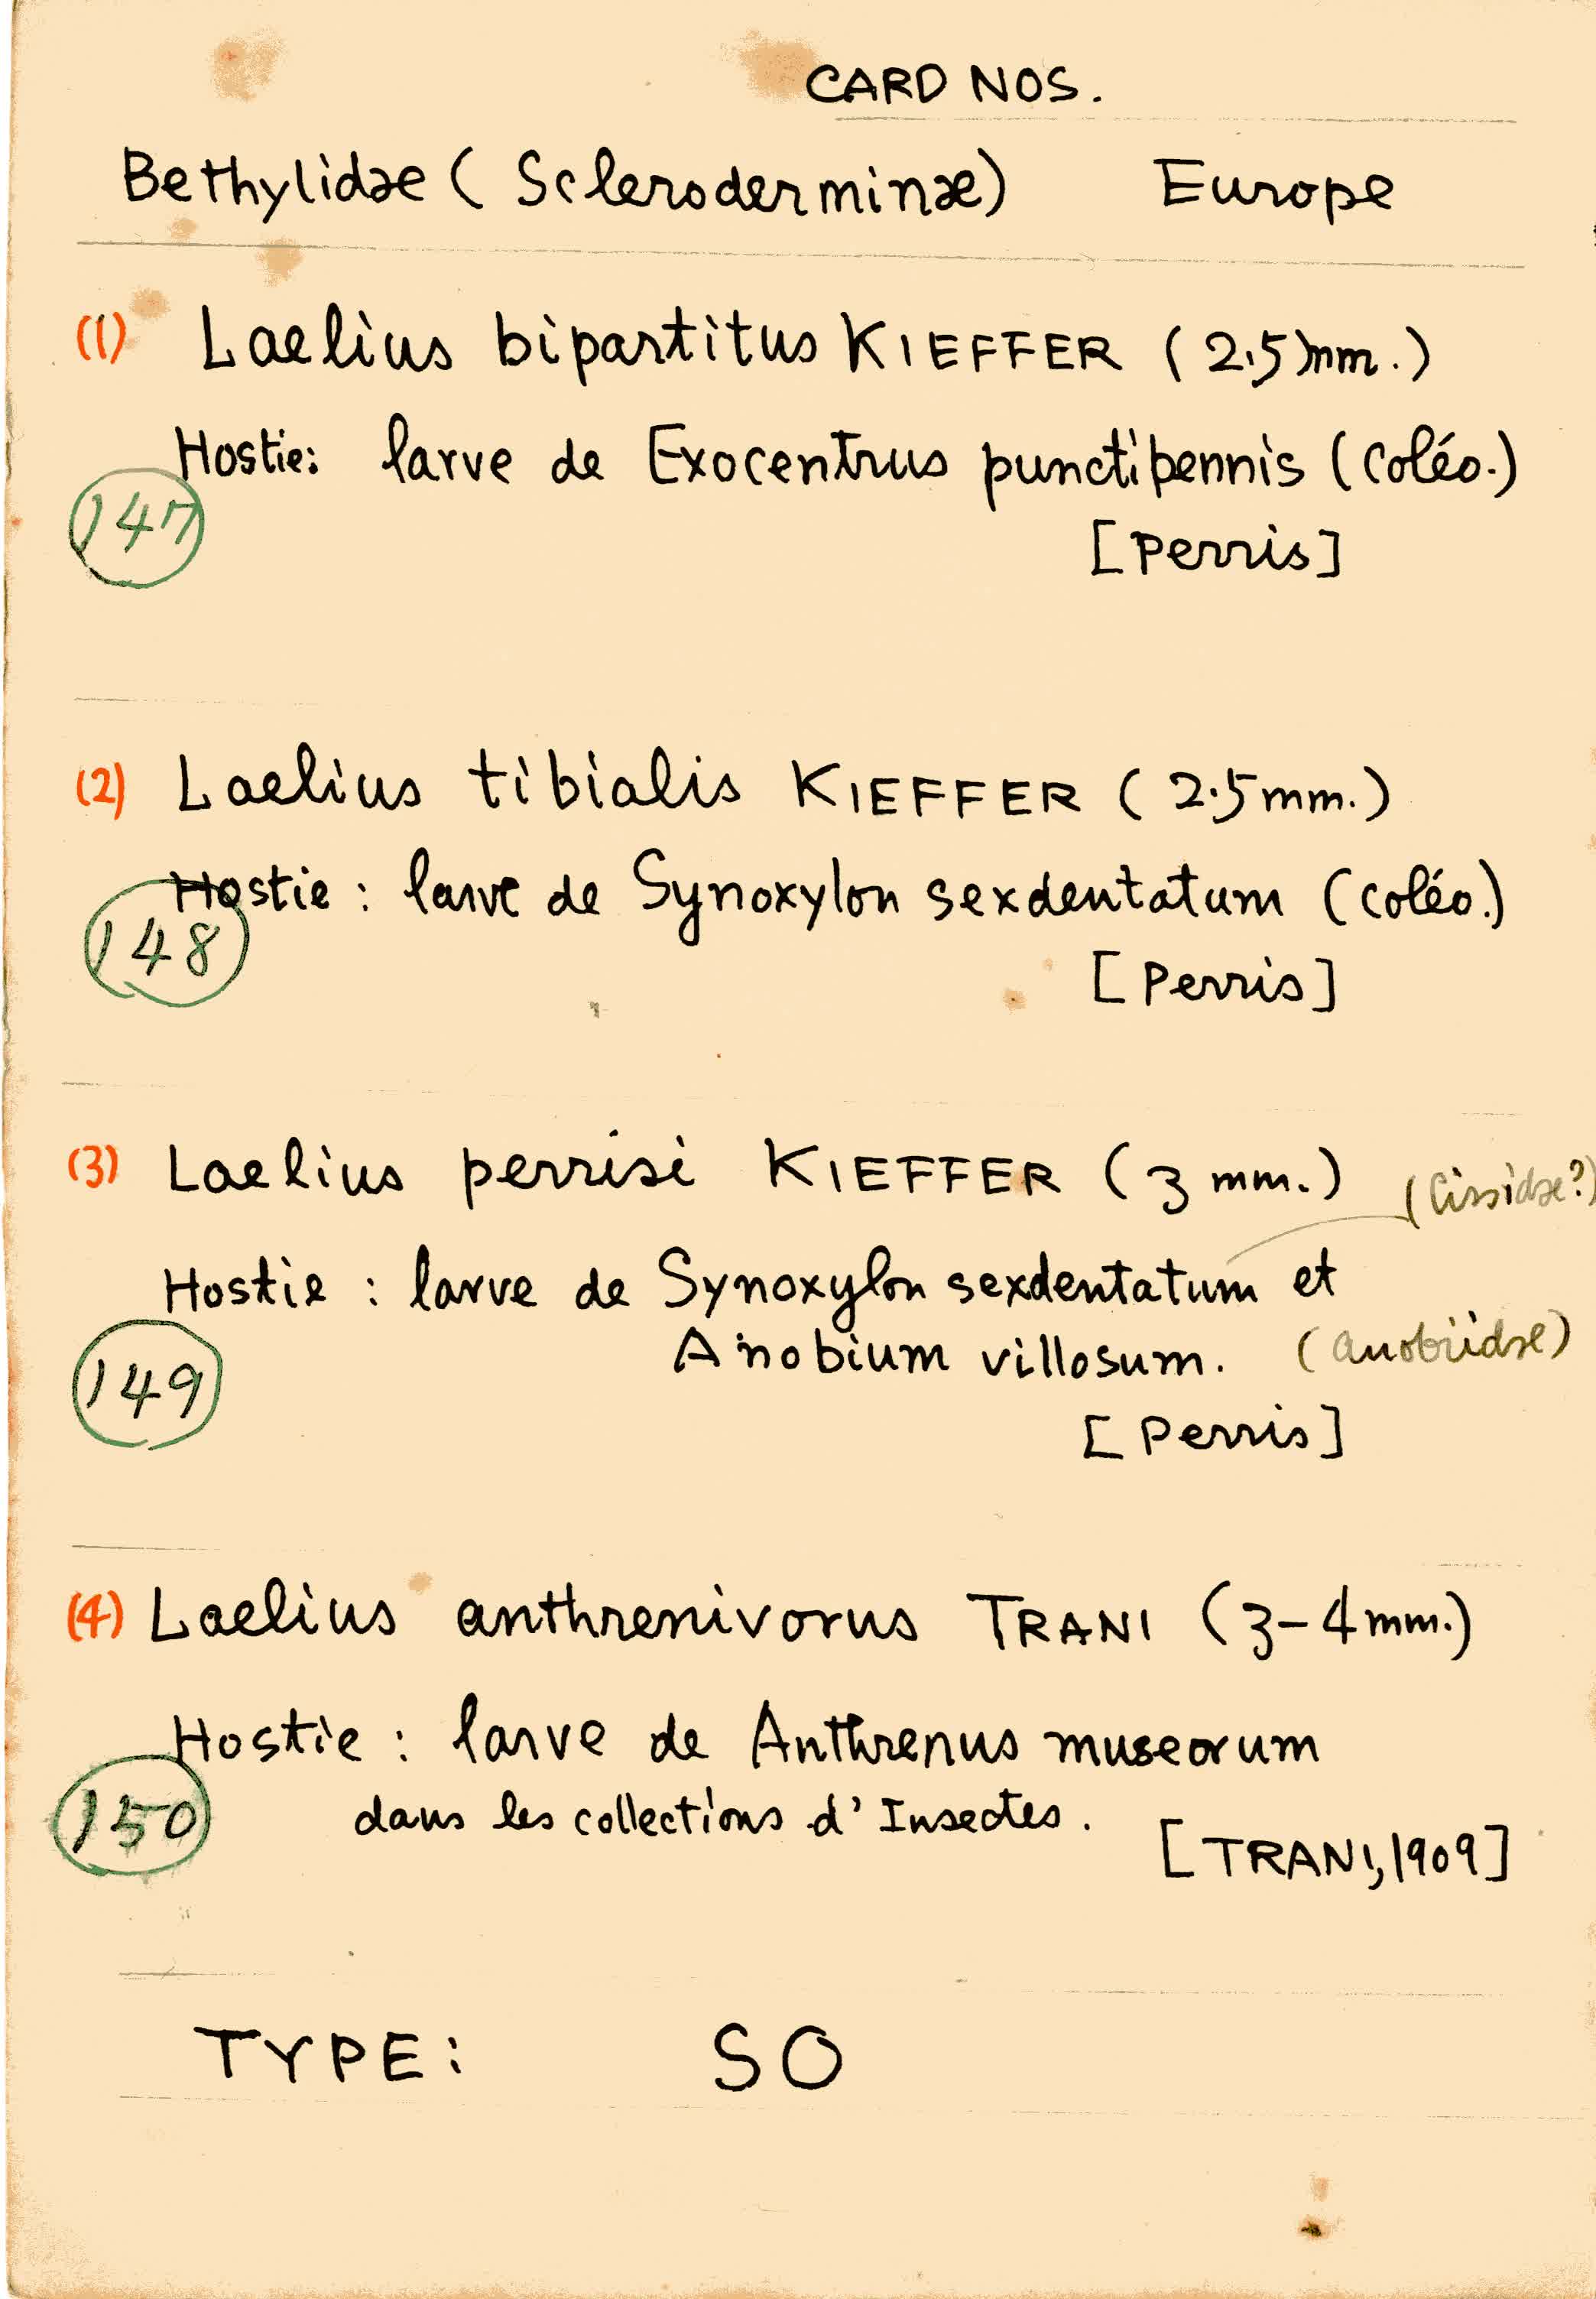 CARD NOS.
Bethylidae (Scleroderminae) Europe
(1) Laelius bipartitus KIEFFER (2.5mm.)
Hostie: larve de Exocentrus punctipennis (Coléo.)
147
[Perris]
(2) Laelius tibialis KIEFFER (2.5mm.)
Hostie: larve de Synoxylon sexdentatum (coléo.)
148
[Perris]
(3) Laelius perrisi KIEFFER (3 mm.)
(Cissidae?)
Hostie: larve de Synoxylon sexdentatum et
Anobium villosum. (Anobiidae)
149
[Perris]
(4) Laelius anthrenivorus TRANI (3-4mm.)
Hostie: larve de Anthrenus museorum
150
dans les collections d'Insectes.
[TRANI, 1909]
TYPE: SO